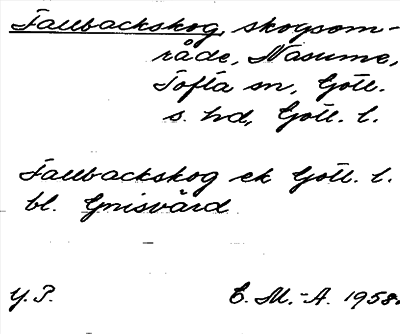 Tallbackskog, skogsom-
råde, Nasume,
Tofta sn, Gotl.
s. hd, Gotl. l.
Tallbackskog ek Gotl. l.
bl. Gnisvärd
Y.P. E. M.-A. 1958.